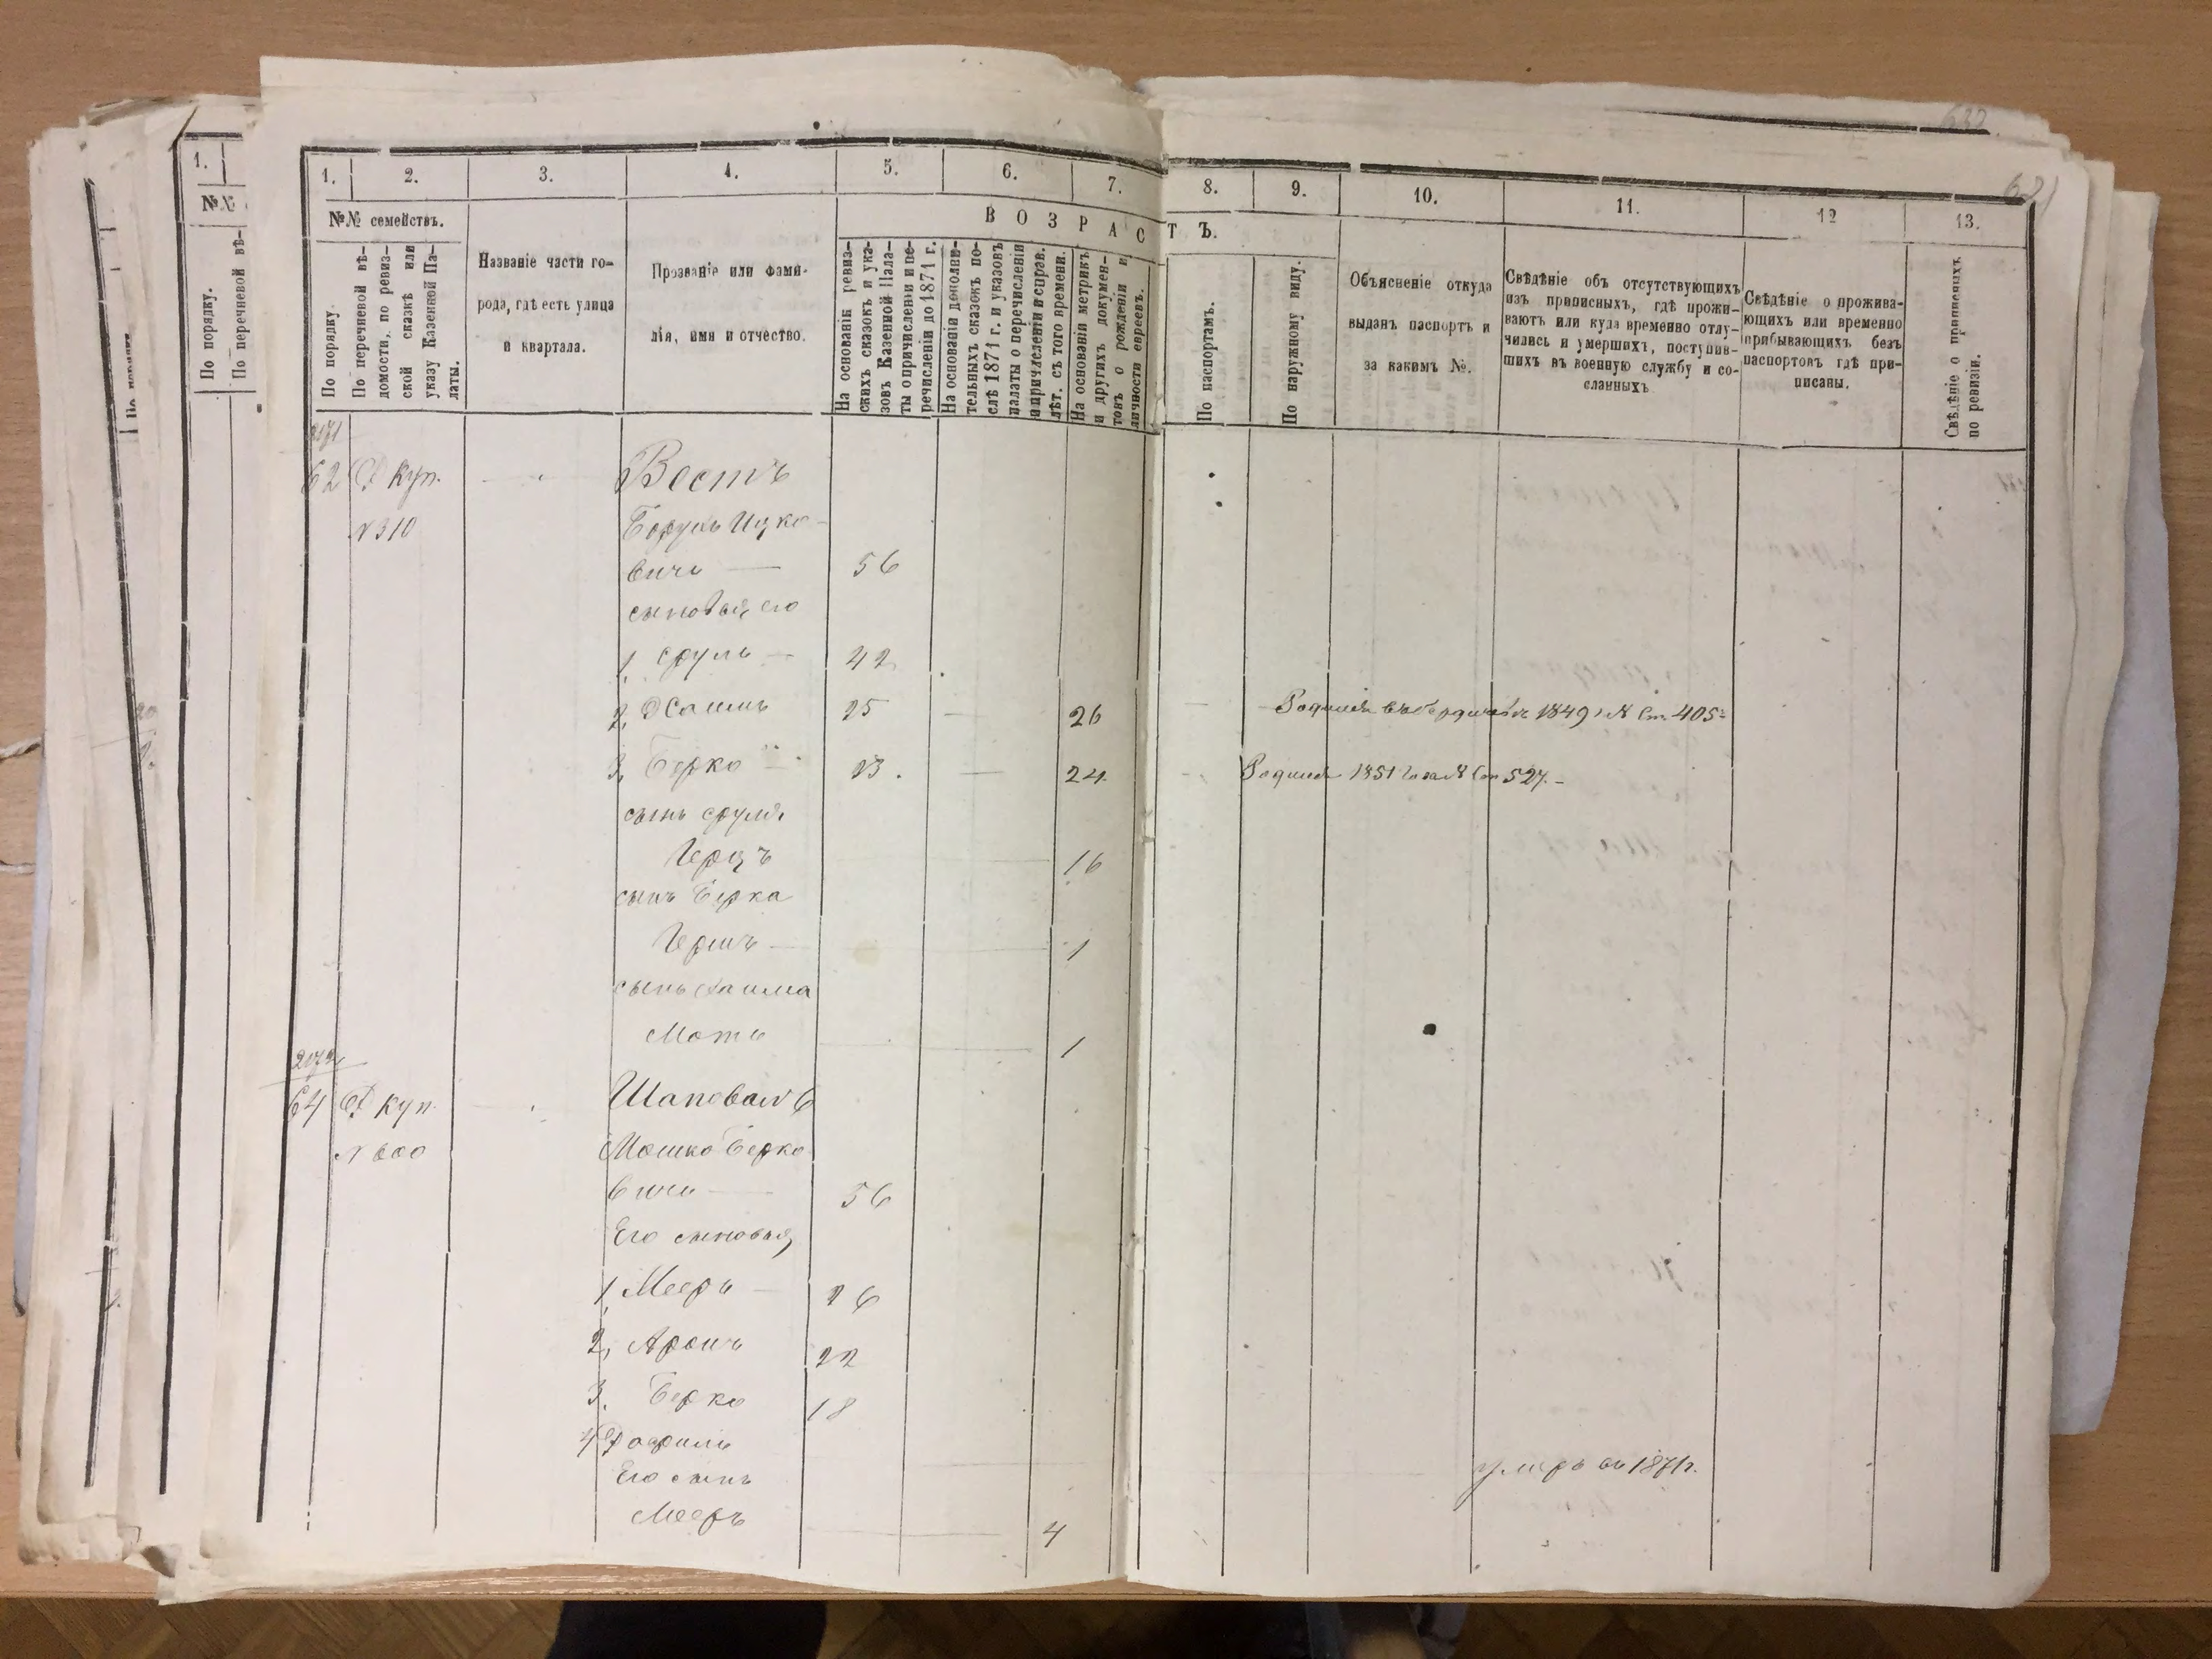 632
631
1.
№№
По порядку.
По перечневой вѣ-
1.
2.
3.
4.
5.
6.
7.
8.
9.
10.
11.
12
13.
№№ семействъ.
По порядку.
По перечневой вѣ-
домости, по ревиз-
ской сказкѣ или
указу Казенной Па-
латы.
Названіе части го-
рода, гдѣ есть улица
и квартала.
Прозваніе или фами-
лія, имя и отчество.
ВОЗРАСТЪ.
На основаніи ревиз-
скихъ сказокъ и ука-
зовъ Казенной Пала-
ты о причисленіи и пе-
речисленіи до 1871 г.
На основаніи дополни-
тельныхъ сказокъ по-
слѣ 1871 г. и указовъ
палаты о перечисленіи
и причисленіи и справ.
лѣт. съ того времени.
На основаніи метрикъ
и другихъ докумен-
товъ о рожденіи и
личности евреевъ.
По паспортамъ.
По наружному виду.
Объясненіе откуда
выданъ паспортъ и
за какимъ №.
Свѣдѣніе объ отсутствующихъ
изъ приписныхъ, гдѣ прожи-
ваютъ или куда временно отлу-
чились и умершихъ, поступив-
шихъ въ военную службу и со-
сланныхъ.
Свѣдѣніе о прожива-
ющихъ или временно
прибывающихъ безъ
паспортовъ гдѣ при-
писаны.
Свѣдѣніе о приписныхъ
по ревизіи.
2171
62 Куп. Вестъ
№310 Борухъ Ицко-
вичъ — 56
сыновья его
1. Сруль — 42
2. Хаимъ 25 — 26 Родился въ Бердичевѣ 1849 г. № Ст. 405
3. Берко 23. — 24 Родился 1851 года № Ст. 527. –
сынъ Сруля
Герцъ 16
сынъ Берка
Гершъ — 1
сынъ Хаима
Моть 1
2172
64 Куп. Шаповалъ
№600 Мошко Берко-
вичъ — 56
Его сыновья
1. Мееръ — 26
2, Аронъ 22
3. Берко 18
4 умеръ въ 1871 г.
Его сынъ
Мееръ 4